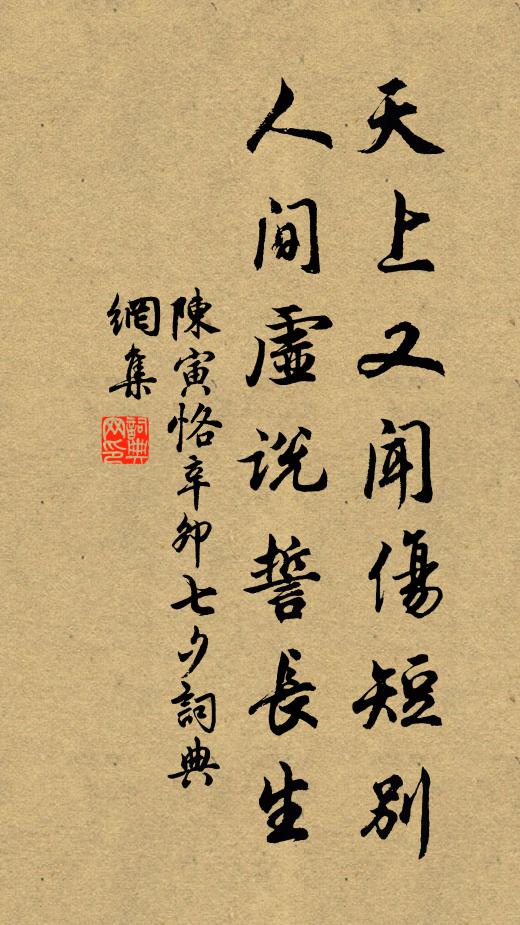 天上又聞傷短別
人間虛說誓長生
陳寅恪辛卯七夕詞典
網集
詞典网印